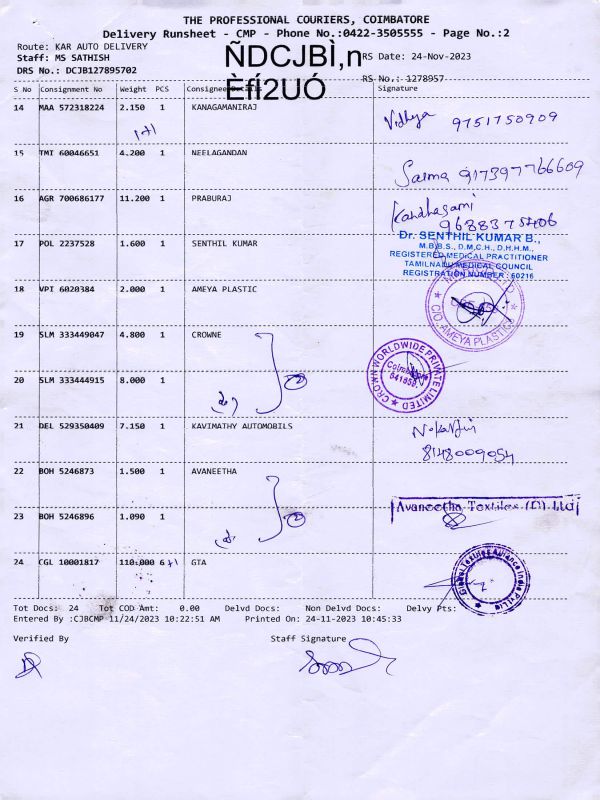 THE PROFESSIONAL COURIERS, COIMBATORE
Delivery Runsheet - CMP - Phone No.:0422-3505555 - Page No.:2
Route: KAR AUTO DELIVERY
Staff: MS SATHISH
DRS No.: DCJB127895702
ÑDCJBÌ,n
Èfí2UÓ
RS Date: 24-Nov-2023
RS No.: 1278957
S No Consignment No Weight PCS Consignee Details Signature
14 MAA 572318224 2.150 1 KANAGAMANIRAJ
(+1)
Vidhya 9751750909
15 TMI 60046651 4.200 1 NEELAGANDAN
917397766609
16 AGR 700686177 11.200 1 PRABURAJ
Kandhasami
9688375406
17 POL 2237528 1.600 1 SENTHIL KUMAR
Dr. SENTHIL KUMAR B.,
M.B.B.S., D.M.C.H., D.H.H.M.,
REGISTERED MEDICAL PRACTITIONER
TAMILNADU MEDICAL COUNCIL
REGISTRATION NUMBER : 60216
18 VPI 6020384 2.000 1 AMEYA PLASTIC
C/O AMEYA PLASTICS
19 SLM 333449047 4.800 1 CROWNE
CROWN WORLDWIDE PRIVATE LIMITED
Coimbatore
641658.
20 SLM 333444915 8.000 1
2
21 DEL 529350409 7.150 1 KAVIMATHY AUTOMOBILS
8148009054
22 BOH 5246873 1.500 1 AVANEETHA
Avaneetha Textiles (P) Ltd
23 BOH 5246896 1.090 1
2
24 CGL 10001817 110.000 6 +1 GTA
Global Textiles Alliance India Pvt Ltd
Tot Docs: 24 Tot COD Amt: 0.00 Delvd Docs: Non Delvd Docs: Delvy Pts:
Entered By :CJBCMP 11/24/2023 10:22:51 AM Printed On: 24-11-2023 10:45:33
Verified By Staff Signature